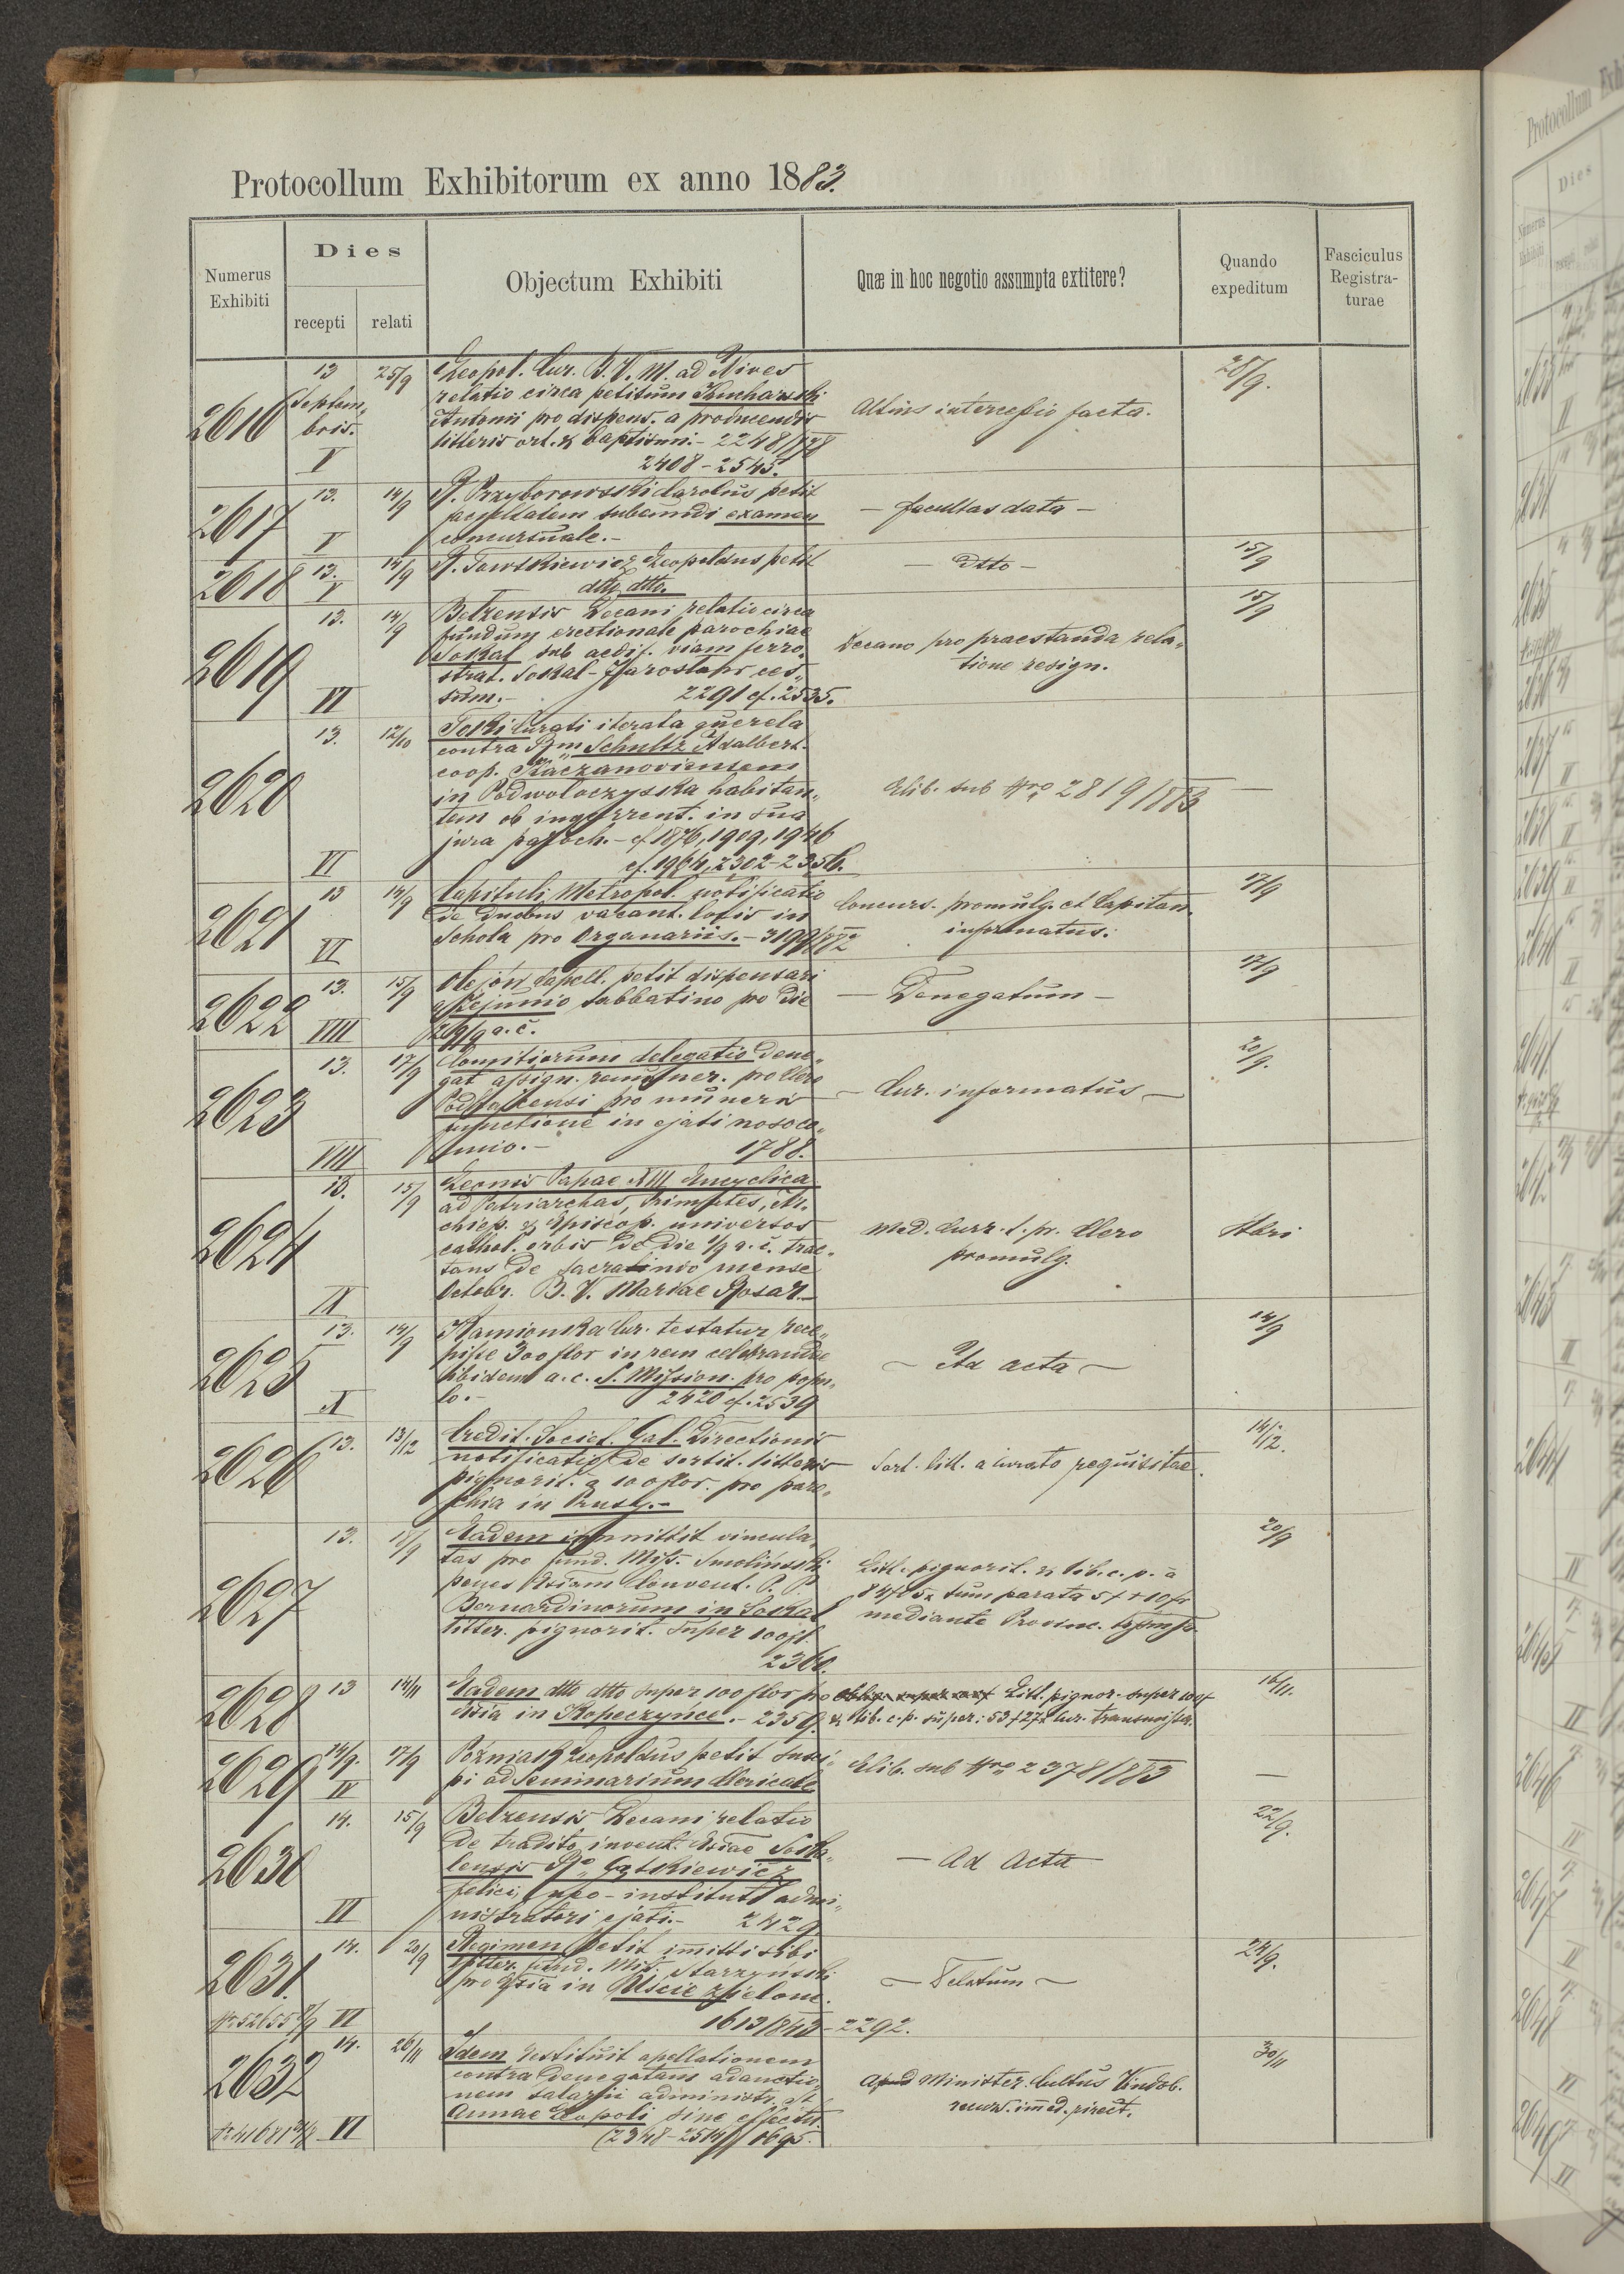 Protocollum Exhibitorum ex anno 1883.
Numerus Exhibiti
Dies
recepti
relati
Objectum Exhibiti
Quæ in hoc negotio assumpta extitere?
Quando expeditum
Fasciculus Registra-
turae
2616
13 Septem,,
bris.
V
25/9
Leopol. Cur. B. V. M. ad Nives
relatio circa petitum
Antonii pro dispens. a producendis
litteris ort. & baptismi. - 2248/878
2408 - 2545.
Altius intercessio facta.
28/9.
2617
13.
V
14/9
R. Przyborowski Carolus petit
facultatem subeundi examen
concursuale. -
- facultas data -
2618
13.
V
14/9
Leopoldus petit
dtto dtto.
- dtto -
15/9
2619
13.
VI
14/9
Belzensis Decani relatio circa
fundum erectionale parochiae
Sokal sub aedif. viam ferro,,
strat. Sokal - Jarosław ces,,
sum. - 2291 cf. 2535.
Decano pro praestanda rela,,
tione resign.
15/9
2620
13.
VI
12/10
Toki Curati iterata querela
contra Rm Schultz Adalbert.
coop. Kaczanoviensem
in Podwołoczyska habitan,,
tem ob ingerent. in sua
jura paroch. - cf 1876, 1909, 1946
cf. 1964, 2302 - 2356.
Elib. sub Nro 2819/883
-
2621
13
VI
14/9
Capituli Metropol. notificatio
de duobus vacant. locis in
Schola pro Organariis. - 3199/872
Concurs. promulg. et Capitan.
informatus.
17/9
2622
13.
VIII
15/9
Olejów Capell. petit dispensari
a jejunio sabbatino pro die
29/9 a. c.
- Denegatum -
17/9
2623
13.
VIII
17/9
Comitiorum delegatio dene,,
gat assign. remuner. pro Clero
Podhajcensi pro muneris
functione in ejati nosoco,,
mio. - 1788.
- Cur. informatus -
20/9.
2624
13.
IX
15/9
Leonis Papae XIII Encyclica
ad Patriarchas, Primates, Ar,,
chiep. & Episcop. universos
cathol. orbis de die 1/9 a. c. trac,,
tans de sacrando mense
Octobr. B. V. Mariae Rosar. -
Med. Curr. f. pr. Clero
promulg.
2625
13.
X
14/9
Kamionka Cur. testatur rece,,
pisse 300 flor in rem celebrandae
ibidem a. c. S. Mission. pro popu,,
lo. - 2420 cf. 2539
- Ad acta -
14/9
2626
13.
13/12
Credit. Societ. Gal. Directionis
notificatio de sortit. litteris
pignorit. a 100 flor. pro paro,,
chia in Prusy. -
Sort. litt. a curato requisitae.
14/12.
2627
13.
18/9
Eadem immittit vincula,,
tas pro fund. Miss. Smolinski
penes Convent. P. P.
Bernardinorum in Sokal
litter. pignorit. super 100 fl.
2360.
Litt. pignorit. & lib. c. p. à
tum parata
mediante Provinc.
20/9
2628
13
14/11
Eadem dtto dtto super 100 flor pro
in Kopeczynce. - 2359.
Litt. pignor. super 100 f
& lib. c. p. super: 53 f 27 x Cur. transmissa.
16/11.
2629
14/9.
IV
17/9
Poźniak Leopoldus petit susci,,
pi ad Seminarium Clericale
Elib. sub Nro 2378/883
-
2630
14.
VI
15/9
Belzensis Decani relatio
de tradito invent. Soka,,
lensis Ro
Felici neo-instituto admi,,
nistratori ejati. - 2429
- Ad Acta
22/9.
2631.
Nr 52655
14.
VI
20/9
Regimen petit imitti sibi
litter. fund. Miss. Starzyński
pro in Uście zielone.
1613/843 - 2292.
- Delatum -
24/9.
2632
Nr 41681
14.
VI
26/11
Idem restituit apellationem
contra denegatam adauctio,,
nem salarii administr. St
Annae Leopoli sine effectu.
(2348 - 2514)/ 1695.
Apud Minister. Cultus Vindob.
recurs. imed. direct.
30/11